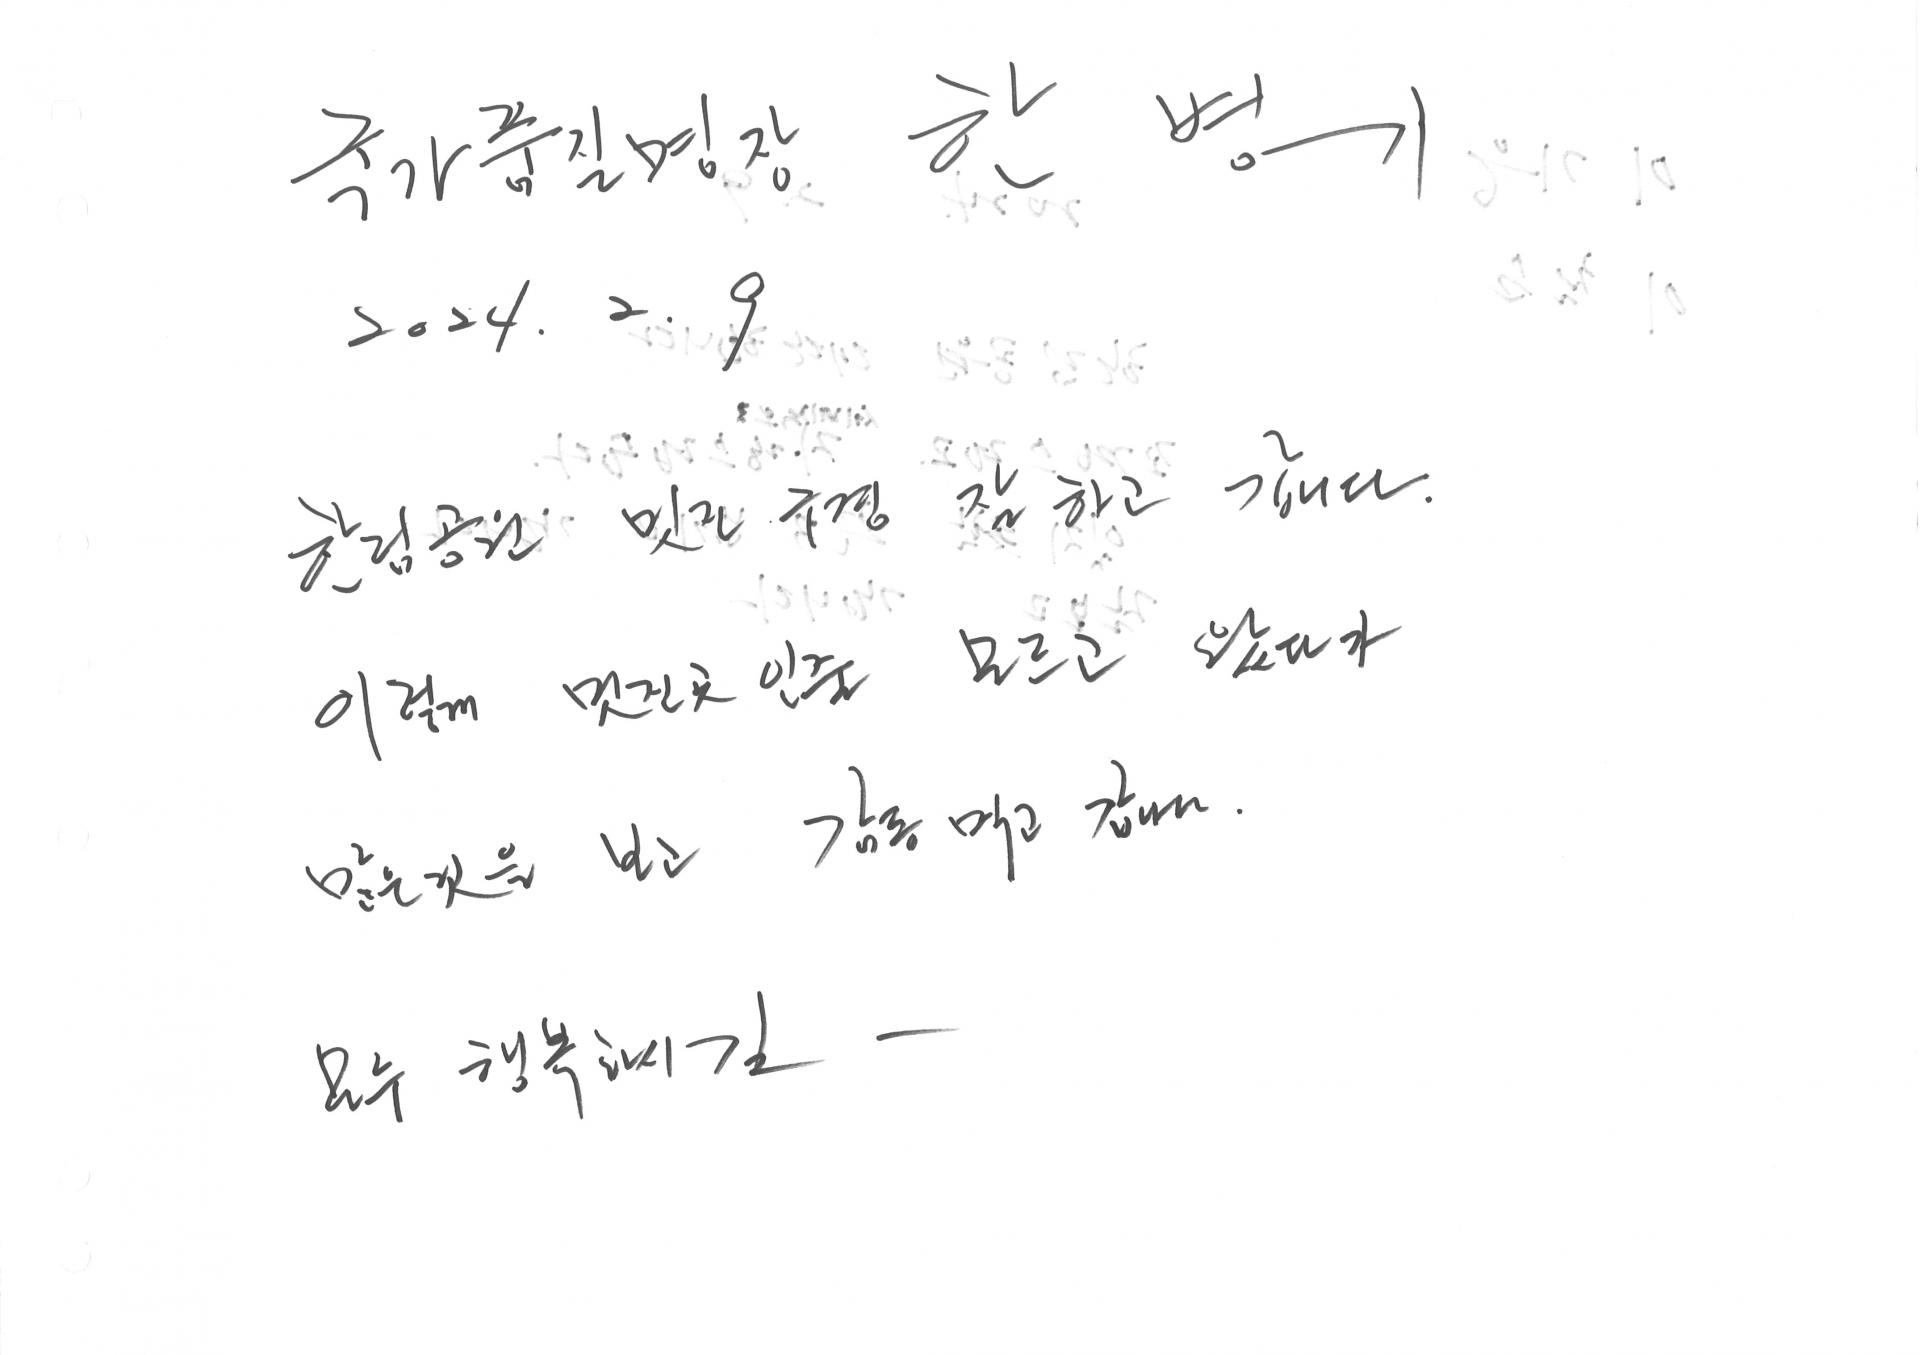 국가품질명장 한 병기
2024. 2. 9
한림공원 멋진 구경 잘 하고 갑니다.
이렇게 멋진곳 인줄 모르고 왔다가
많은것을 보고 감동 먹고 갑니다.
모두 행복하시길 —